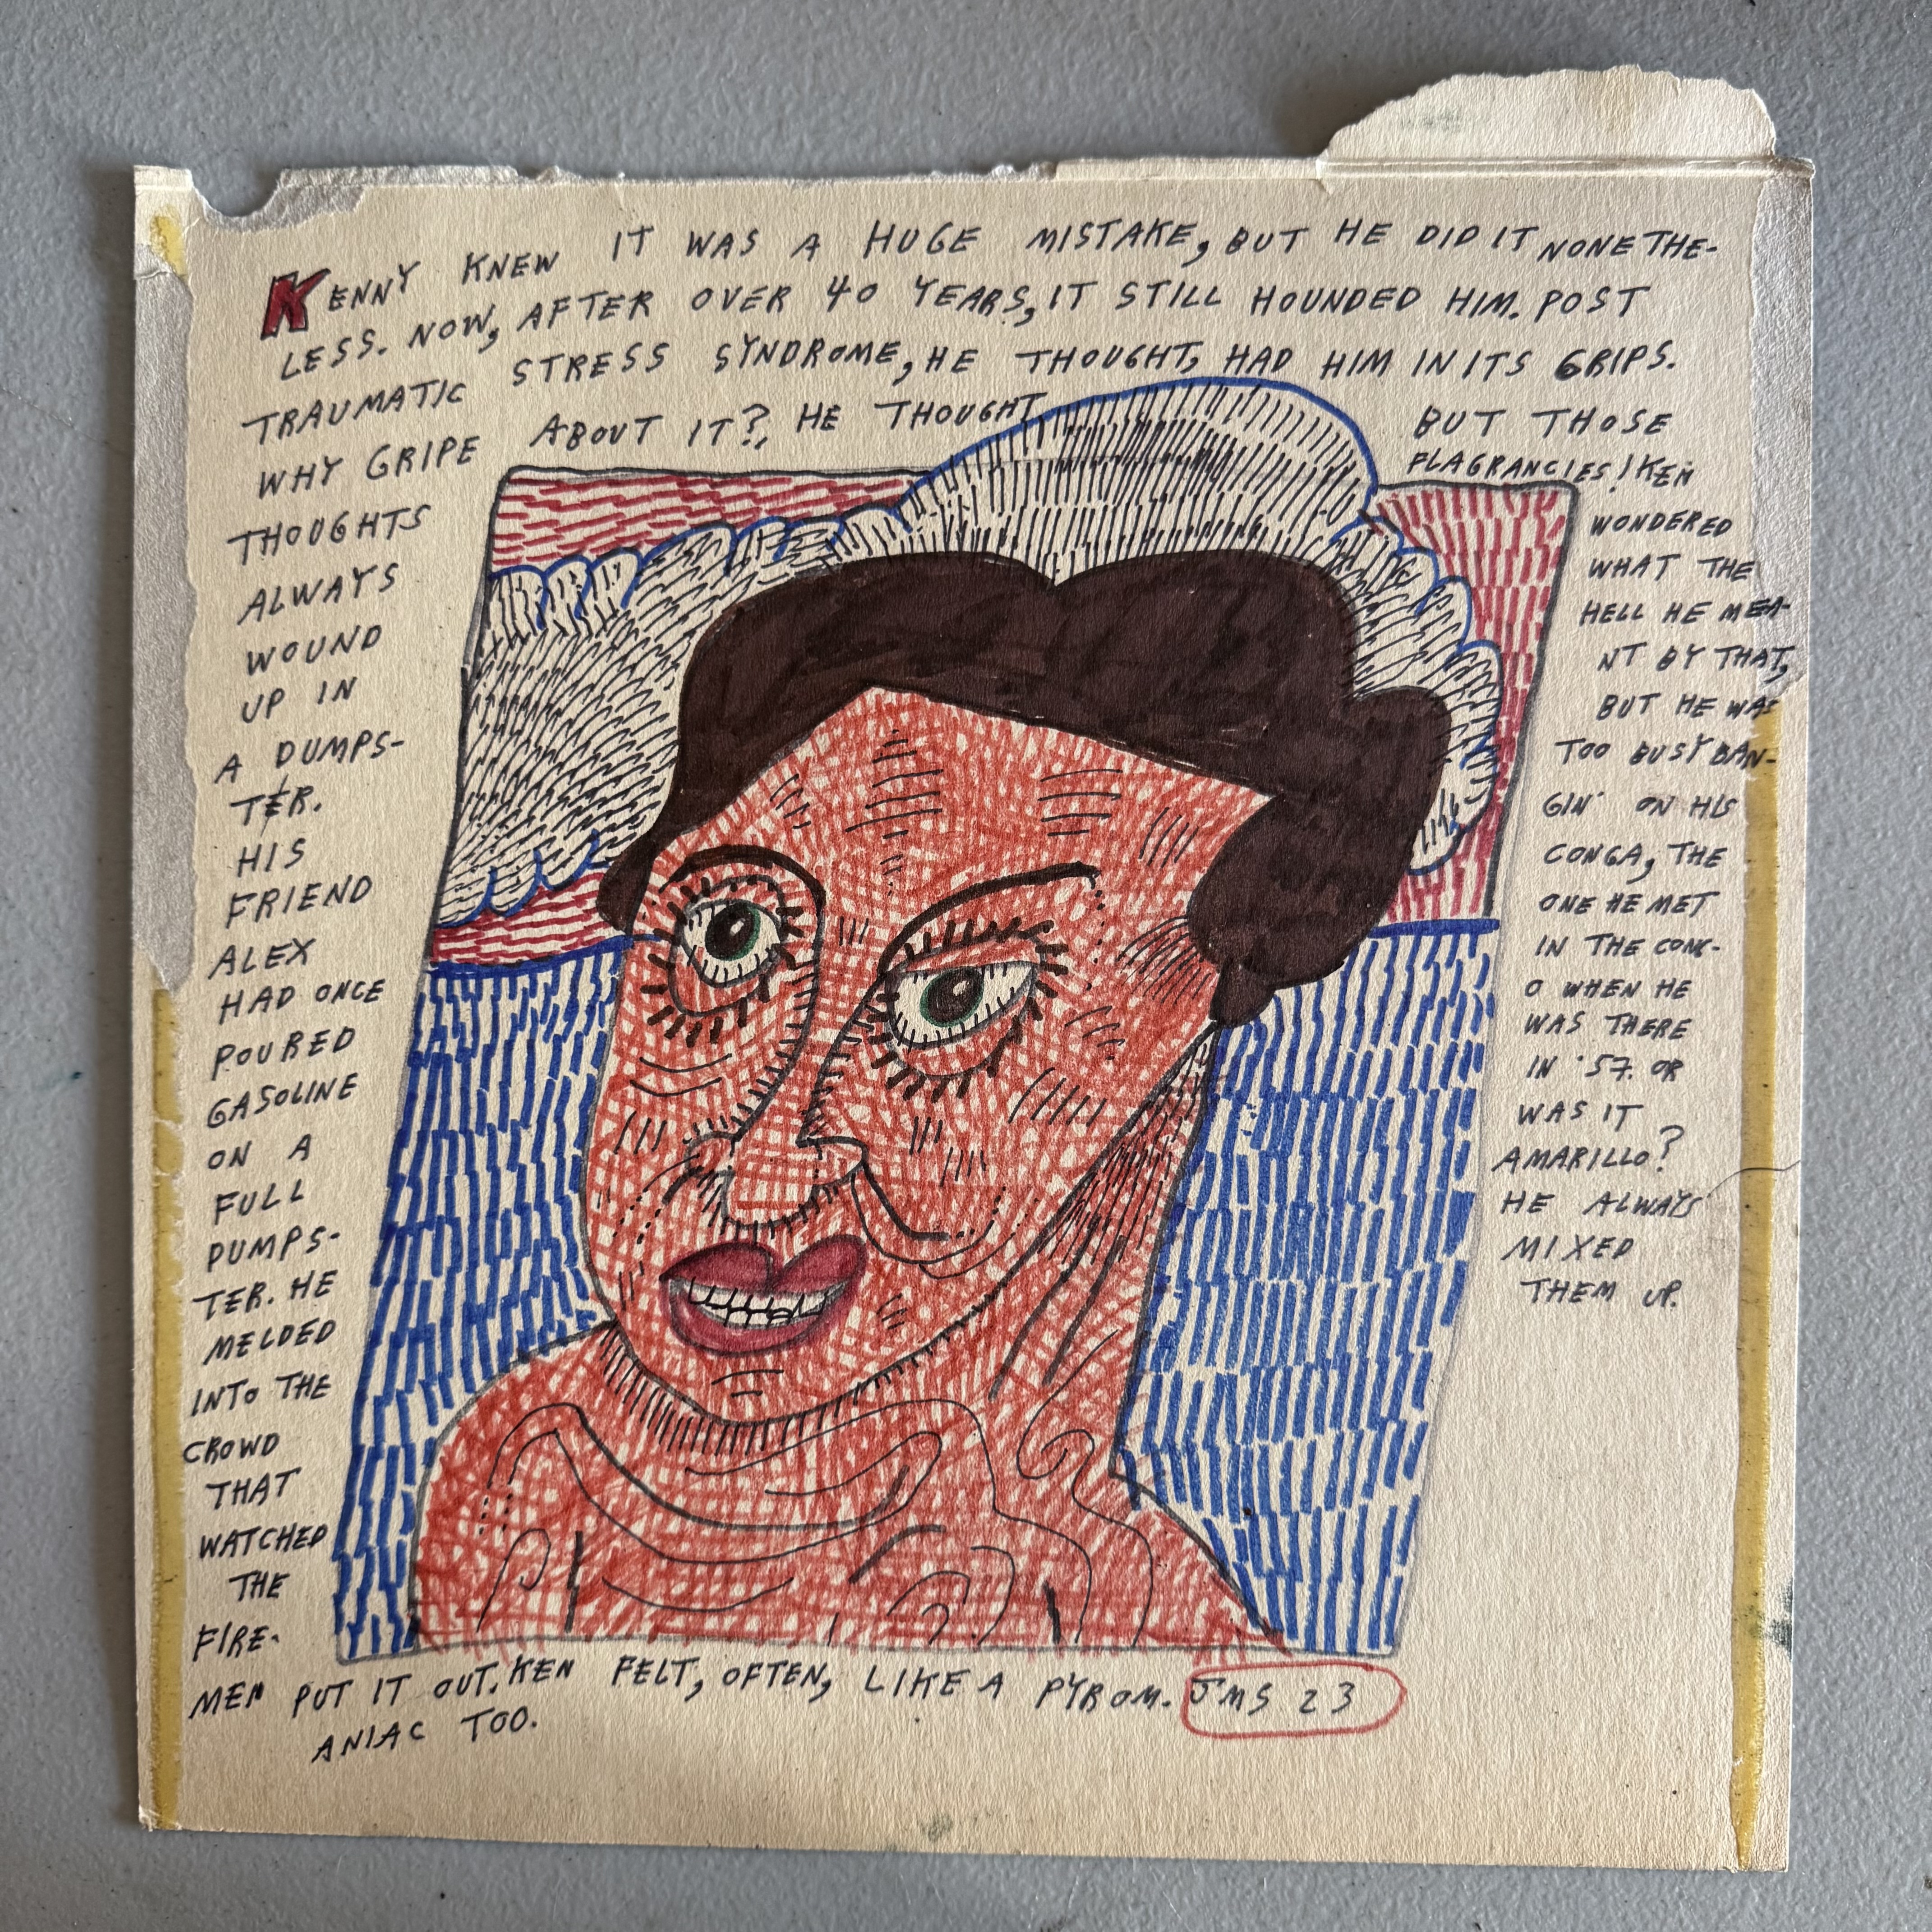 KENNY KNEW IT WAS A HUGE MISTAKE, BUT HE DID IT NONETHE-
LESS. NOW, AFTER OVER 40 YEARS, IT STILL HOUNDED HIM. POST
TRAUMATIC STRESS SYNDROME, HE THOUGHT, HAD HIM IN ITS GRIPS.
WHY GRIPE ABOUT IT?, HE THOUGHT.
THOUGHTS
ALWAYS
WOUND
UP IN
A DUMPS-
TER.
HIS
FRIEND
ALEX
HAD ONCE
POURED
GASOLINE
ON A
FULL
DUMPS-
TER. HE
MELDED
INTO THE
CROWD
THAT
WATCHED
THE
FIRE-
MEN PUT IT OUT. KEN FELT, OFTEN, LIKE A PYROM-
ANIAC TOO.
BUT THOSE
FLAGRANCIES! KEN
WONDERED
WHAT THE
HELL HE MEA-
NT BY THAT,
BUT HE WAS
TOO BUSY BAN-
GIN' ON HIS
CONGA, THE
ONE HE MET
IN THE CONG-
O WHEN HE
WAS THERE
IN '57. OR
WAS IT
AMARILLO?
HE ALWAYS
MIXED
THEM UP.
JMS 23